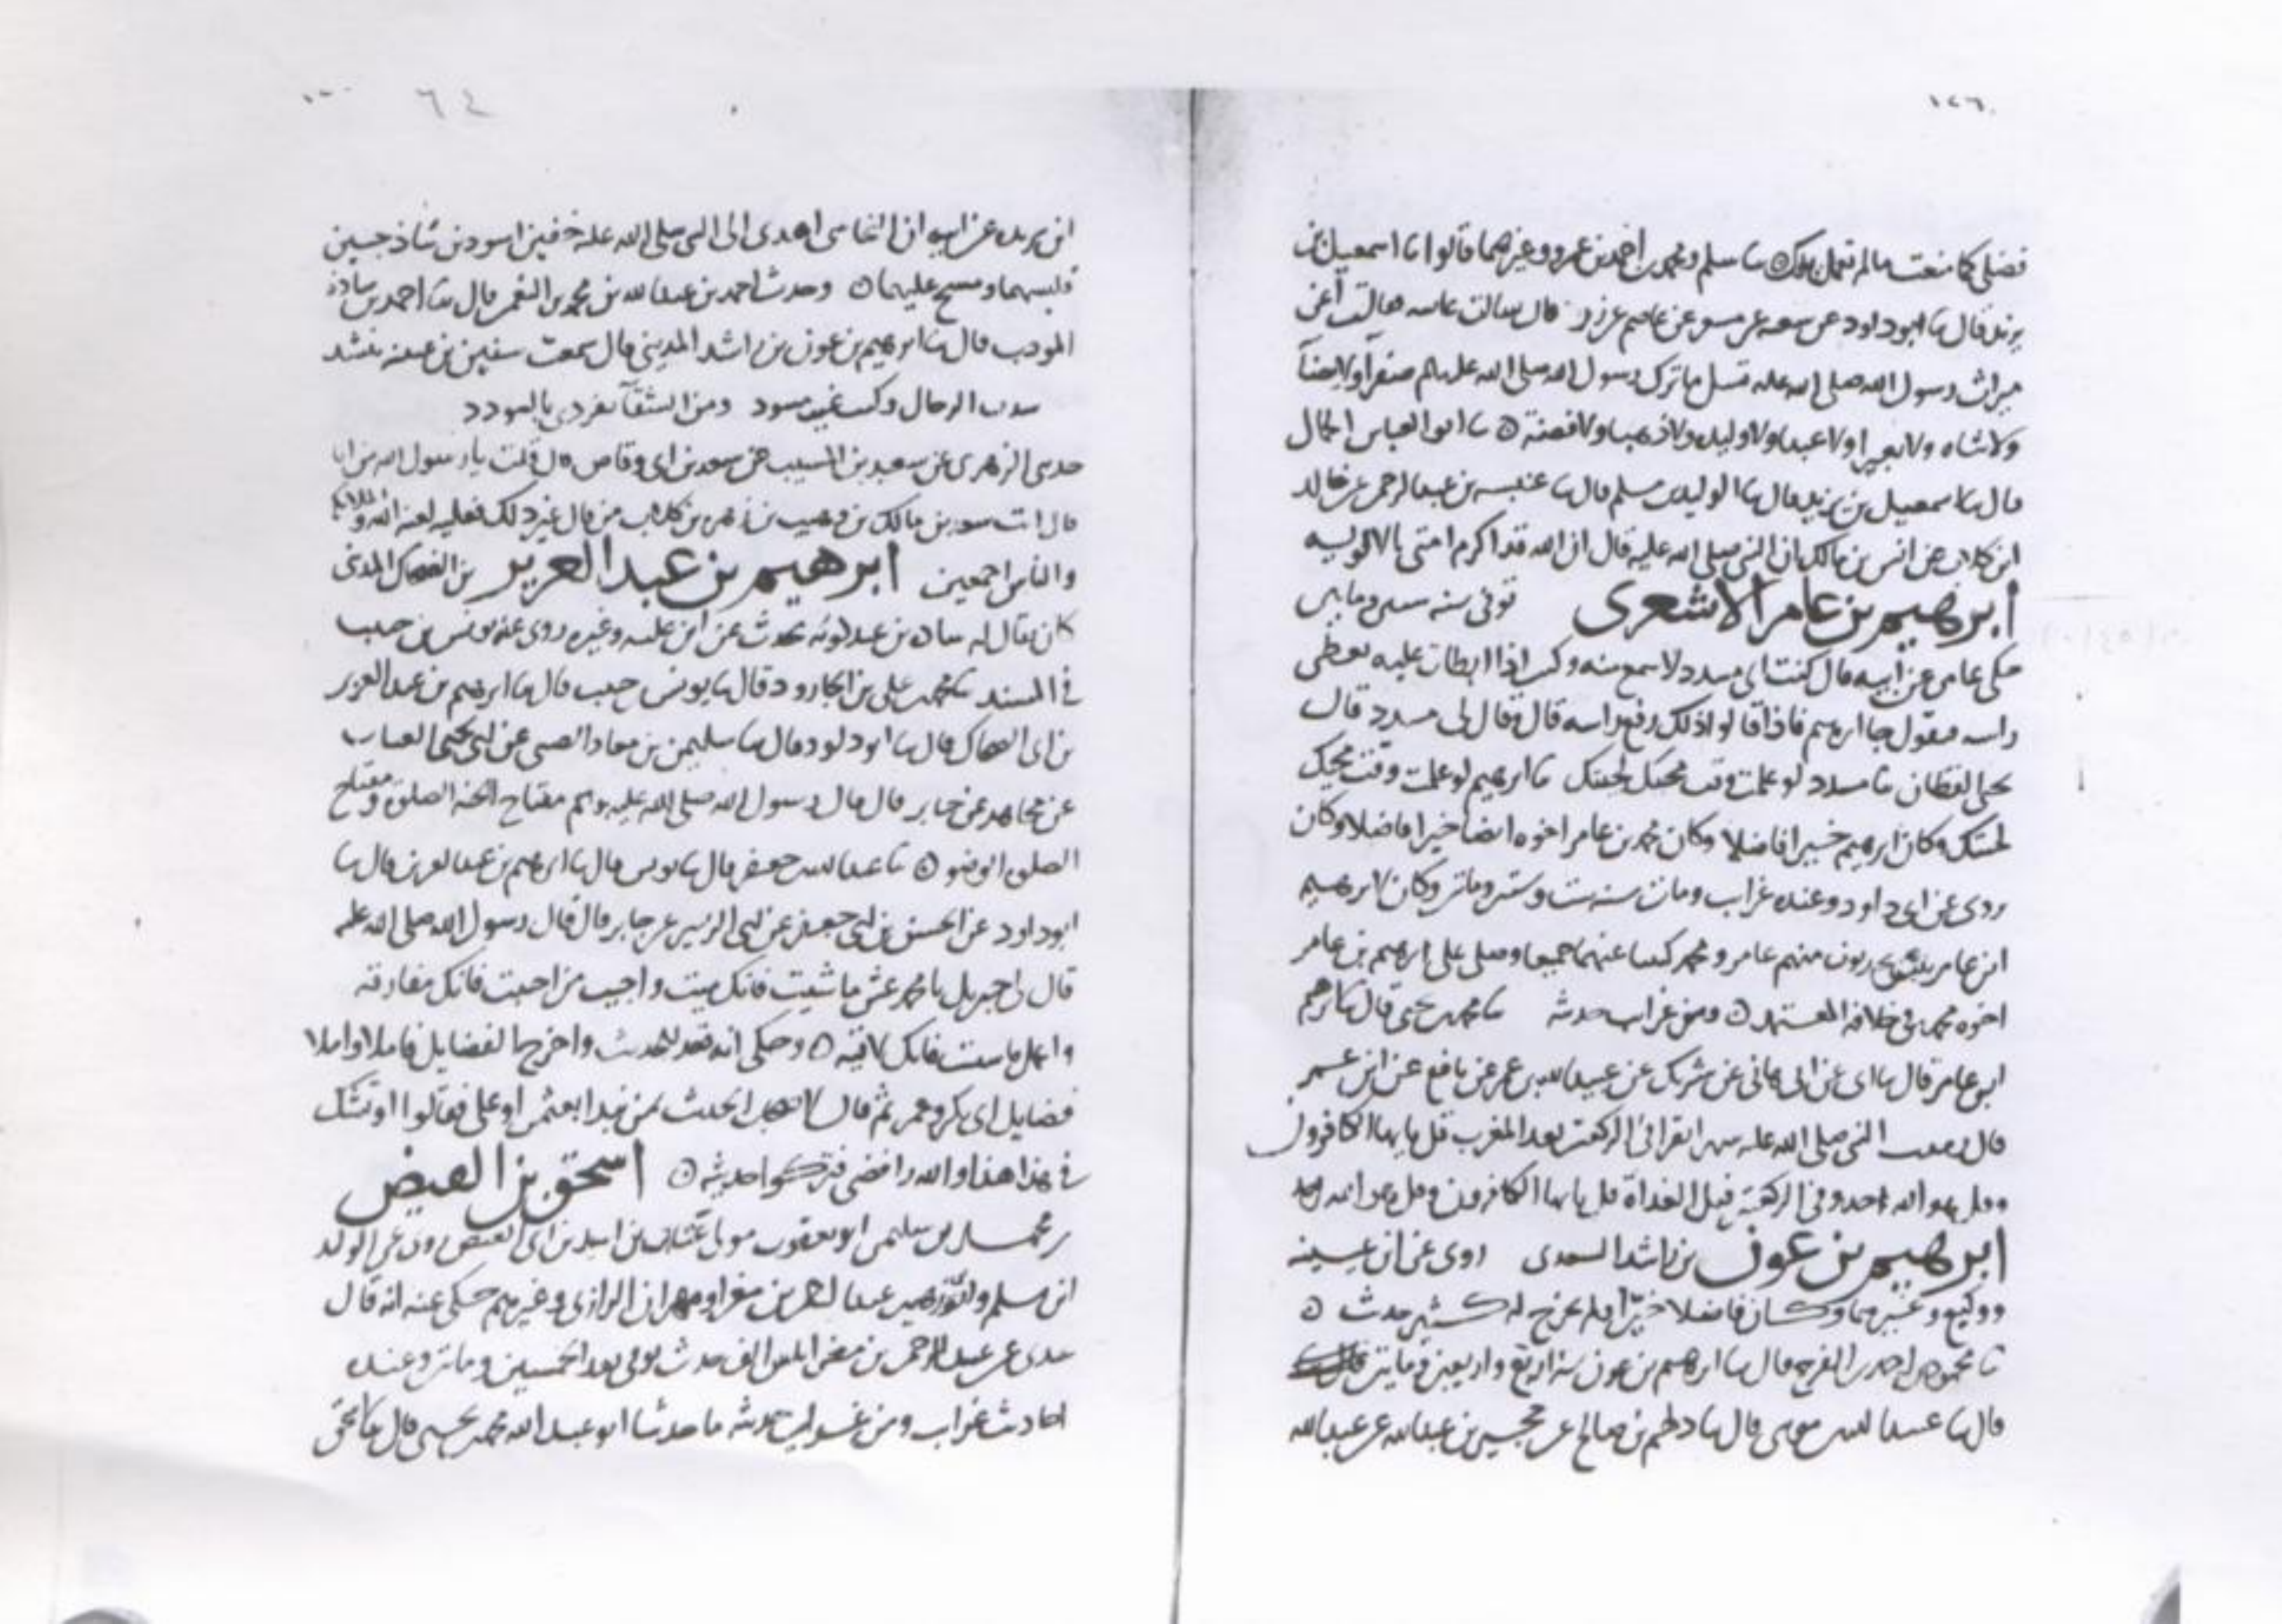 ١٢٦
فضلي كما منعت مالم تعمل يداك ٥ ثنا سلم ومحمد بن احمد بن عمرو وغيرهما قالوا ثنا اسمعيل بن
يزيد قال ثنا ابو داود عن شعبه عن مسعر عن عاصم عن زر قال سالت عايشه فقالت أعن
ميراث رسول الله صلى الله عليه تسل ما ترك رسول الله صلى الله عليه وسلم صفرآ ولا بيضآ
ولا شاه ولا بعيرا ولا عبدا ولا وليده ولا ذهبا ولا فضة ٥ ثنا ابو العباس الجمال
قال ثنا اسمعيل بن يزيد قال ثنا الوليد بن مسلم قال ثنا عنبسه بن عبد الرحمن عن خالد
ابن كلاب عن انس بن مالك ان النبي صلى الله عليه قال ان الله قد اكرم امتي بالالويه
ابرهيم بن عامر الاشعرى توفى سنه ستين ومايتين
حكى عامر عن ابيه قال كنت اتى مسدد لاسمع منه وكنت اذا ابطات عليه يعطى
راسه فيقول جا ابرهيم فاذا قالوا ذلك رفع راسه قال فقال لى مسدد قال
يحيى القطان يا مسدد لو علمت وقت مجيك لجيتك يا ابرهيم لو علمت وقت مجيك
لجيتك وكان ابرهيم خيرا فاضلا وكان محمد بن عامر اخوه ايضا خيرا فاضلا وكان
روى عن ابى داود وعنده غراب ومات سنه ست وستين ومايتين وكان لابرهيم
ابن عامر بنون يحدثون منهم عامر ومحمد كتبنا عنهما جميعا وصلى على ابرهيم بن عامر
اخوه محمد فى خلافة المعتمد ٥ ومن غراب حديثه ثنا محمد بن يحيى قال ثنا ابرهيم
ابن عامر قال ثنا ابى عن ابى هانى عن شريك عن عبيد الله بن عمر عن نافع عن ابن عمر
قال رمقت النبى صلى الله عليه شهرا يقرا فى الركعتين بعد المغرب قل يا يها الكافرون
وقل هو الله احد وفى الركعتين قبل الغداة قل يا يها الكافرون وقل هو الله احد
ابرهيم بن عون بن راشد السعدى روى عن ابن عيينه
ووكيع وغيرهما وكان فاضلا خيرا لم يخرج له كثير حديث ٥
ثنا محمود بن احمد بن الفرج قال ثنا ابرهيم بن عون سنة اربع واربعين ومايتين
قال ثنا عبيد الله بن موسى قال ثنا دلهم بن صالح عن حجير بن عبد الله عن عبد الله
٦٤
ابن بريده عن ابيه ان النجاشى اهدى الى النبي صلى الله عليه خفين اسودين ساذجين
فلبسهما ومسح عليهما ٥ وحدث احمد بن عبد الله بن محمد بن النعمن قال ثنا احمد بن
المودب قال ثنا ابرهيم بن عون بن راشد المدينى قال سمعت سفين بن عيينه ينشد
الرجال وكنت غير مسود ومن الشقآ تفردى بالسودد
حدثنى الزهرى عن سعيد بن المسيب عن سعد بن ابى وقاص قال قلت يا رسول الله من انا
قال انت سعد بن مالك بن وهيب بن زهره بن كلاب من قال غير ذلك فعليه لعنه الله والملايكه
والناس اجمعين ابرهيم بن عبد العزيز بن الضحاك المدنى
كان يقال له شاذه بن عبدكويه يحدث عن ابن عليه وغيره روى عنه يونس بن حبيب
فى المسند ثنا محمد بن على بن الجارود قال ثنا يونس بن حبيب قال ثنا ابرهيم بن عبد العزيز
بن ابى الضحاك قال ثنا ابو داود قال ثنا سليمن بن معاذ الضبى عن ابى يحيى القتات
عن مجاهد عن جابر قال قال رسول الله صلى الله عليه وسلم مفتاح الجنه الصلوة ومفتاح
الصلوة الوضو ٥ ثنا عبد الله بن جعفر قال ثنا يونس قال ثنا ابرهيم بن عبد العزيز قال ثنا
ابو داود عن الحسن بن ابى جعفر عن ابى الزبير عن جابر قال قال رسول الله صلى الله عليه
قال لى جبريل يا محمد عش ما شيت فانك ميت واحبب من احببت فانك مفارقه
واعمل ما شيت فانك لاقيه ٥ وحكى انه قعد للحديث واخرج الفضايل فاملا واملا
فضايل ابى بكر وعمر ثم قال لاصحاب الحديث بمن نبدا بعثمن او على فقالوا او تشك
فى هذا هذا والله رافضى فتركوا حديثه ٥ اسحق بن الفيض
بن محمد بن سليمن ابو يعقوب مولى عتاب بن اسيد بن ابى العيص روى عن الوليد
ابن مسلم وابى زهير عبد الرحمن بن مغرا ومهران الرازى وغيرهم حكى عنه انه قال
عندى عن عبد الرحمن بن مغرا الف حديث توفى بعد الخمسين ومايتين وعنده
احاديث غراب ومن غرايب حديثه ما حدثنا ابو عبد الله محمد بن يحيى قال ثنا اسحق